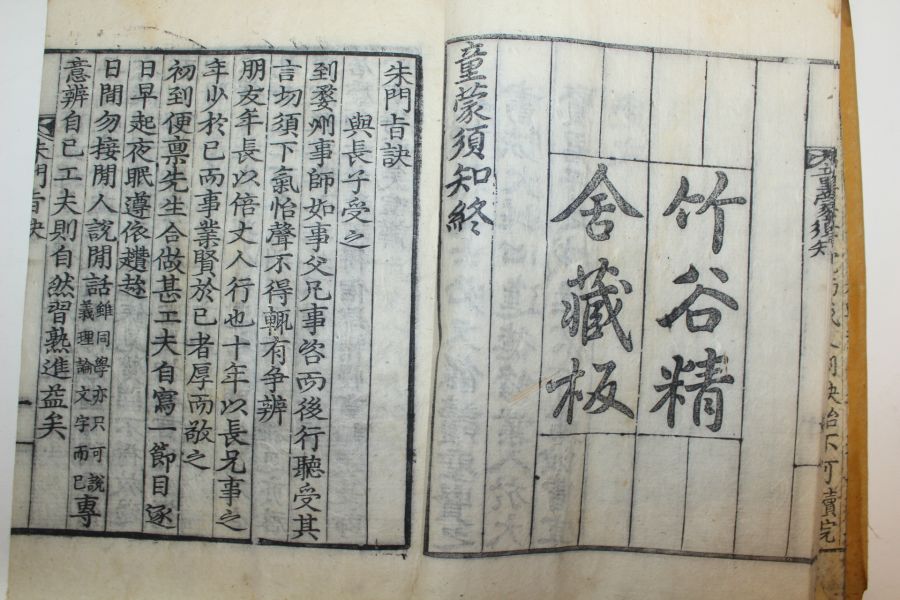 童蒙須知
竹谷精
舍藏板
童蒙須知終
朱門旨訣
與長子受之
到婺州事師如事父兄事咨而後行聽受其
言切須下氣怡聲不得輒有爭辨
朋友年長以倍丈人行也十年以長兄事之
年少於己而事業賢於己者厚而敬之
初到便禀先生合做甚工夫自寫一節目逐
日早起夜眠遵依趲趁
日間勿接閒人說閒話雖同學亦只可說義理論文字而已專
意辨自己工夫則自然習熟進益矣
朱門旨訣